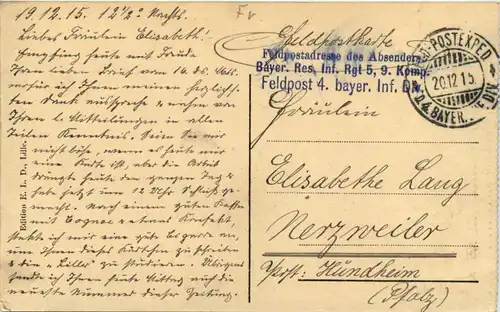 19.12.15. 12½° Nachts.
Liebes Fräulein Elisabeth!
Empfing heute mit Freude
Ihren lieben Brief vom 16. ds. Mts.
wofür ich Ihnen meinen herzlichsten
Dank ausspreche & nahm von
Ihren l. Mitteilungen in allen
Teilen Kenntnis. Seien Sie mir
nicht böse, wenn es heute nur
eine Karte ist, aber die Arbeit
drängte heute den ganzen Tag &
habe jetzt um 12 Uhr Schluß gemacht.
Nach einem guten Kaffee
mit Cognac & etwas Konfekt
steckte ich mir eine gute Cigarre an,
um Ihnen dieses Kärtchen zu schreiben
& die "Liller" zu studieren. Übrigens
sandte ich Ihnen heute Mittag auch die
neueste Nummer dieser Zeitung.
Edition E. L. D., Lille.
Fr
Feldpostkarte
Feldpostadresse des Absenders:
Bayer. Res. Inf. Rgt 5, 9. Komp.
Feldpost 4. bayer. Inf. Div.
POSTEXPED
20.12.15
4. BAYER.
Fräulein
Elisabethe Lang
Nerzweiler
Post: Hundheim
(Pfalz)